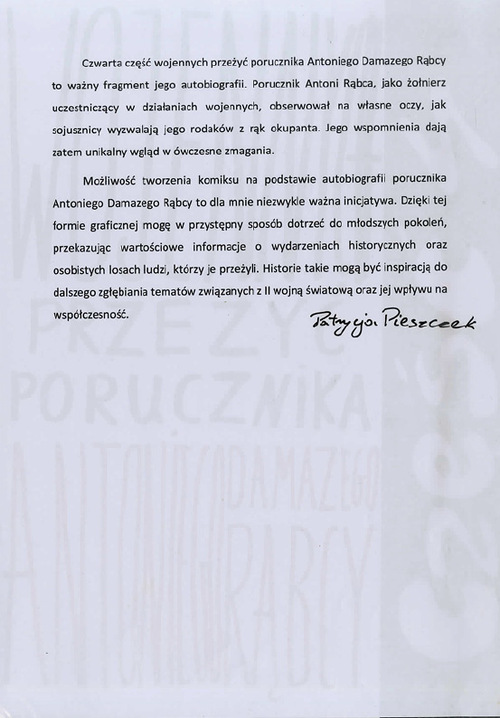 Czwarta część wojennych przeżyć porucznika Antoniego Damazego Rąbcy
to ważny fragment jego autobiografii. Porucznik Antoni Rąbca, jako żołnierz
uczestniczący w działaniach wojennych, obserwował na własne oczy, jak
sojusznicy wyzwalają jego rodaków z rąk okupanta. Jego wspomnienia dają
zatem unikalny wgląd w ówczesne zmagania.
Możliwość tworzenia komiksu na podstawie autobiografii porucznika
Antoniego Damazego Rąbcy to dla mnie niezwykle ważna inicjatywa. Dzięki tej
formie graficznej mogę w przystępny sposób dotrzeć do młodszych pokoleń,
przekazując wartościowe informacje o wydarzeniach historycznych oraz
osobistych losach ludzi, którzy je przeżyli. Historie takie mogą być inspiracją do
dalszego zgłębiania tematów związanych z II wojną światową oraz jej wpływu na
współczesność.
Patrycja Pieszczek
PRZEŻYĆ
PORUCZNIKA
ANTONIEGO DAMAZEGO
RĄBCY